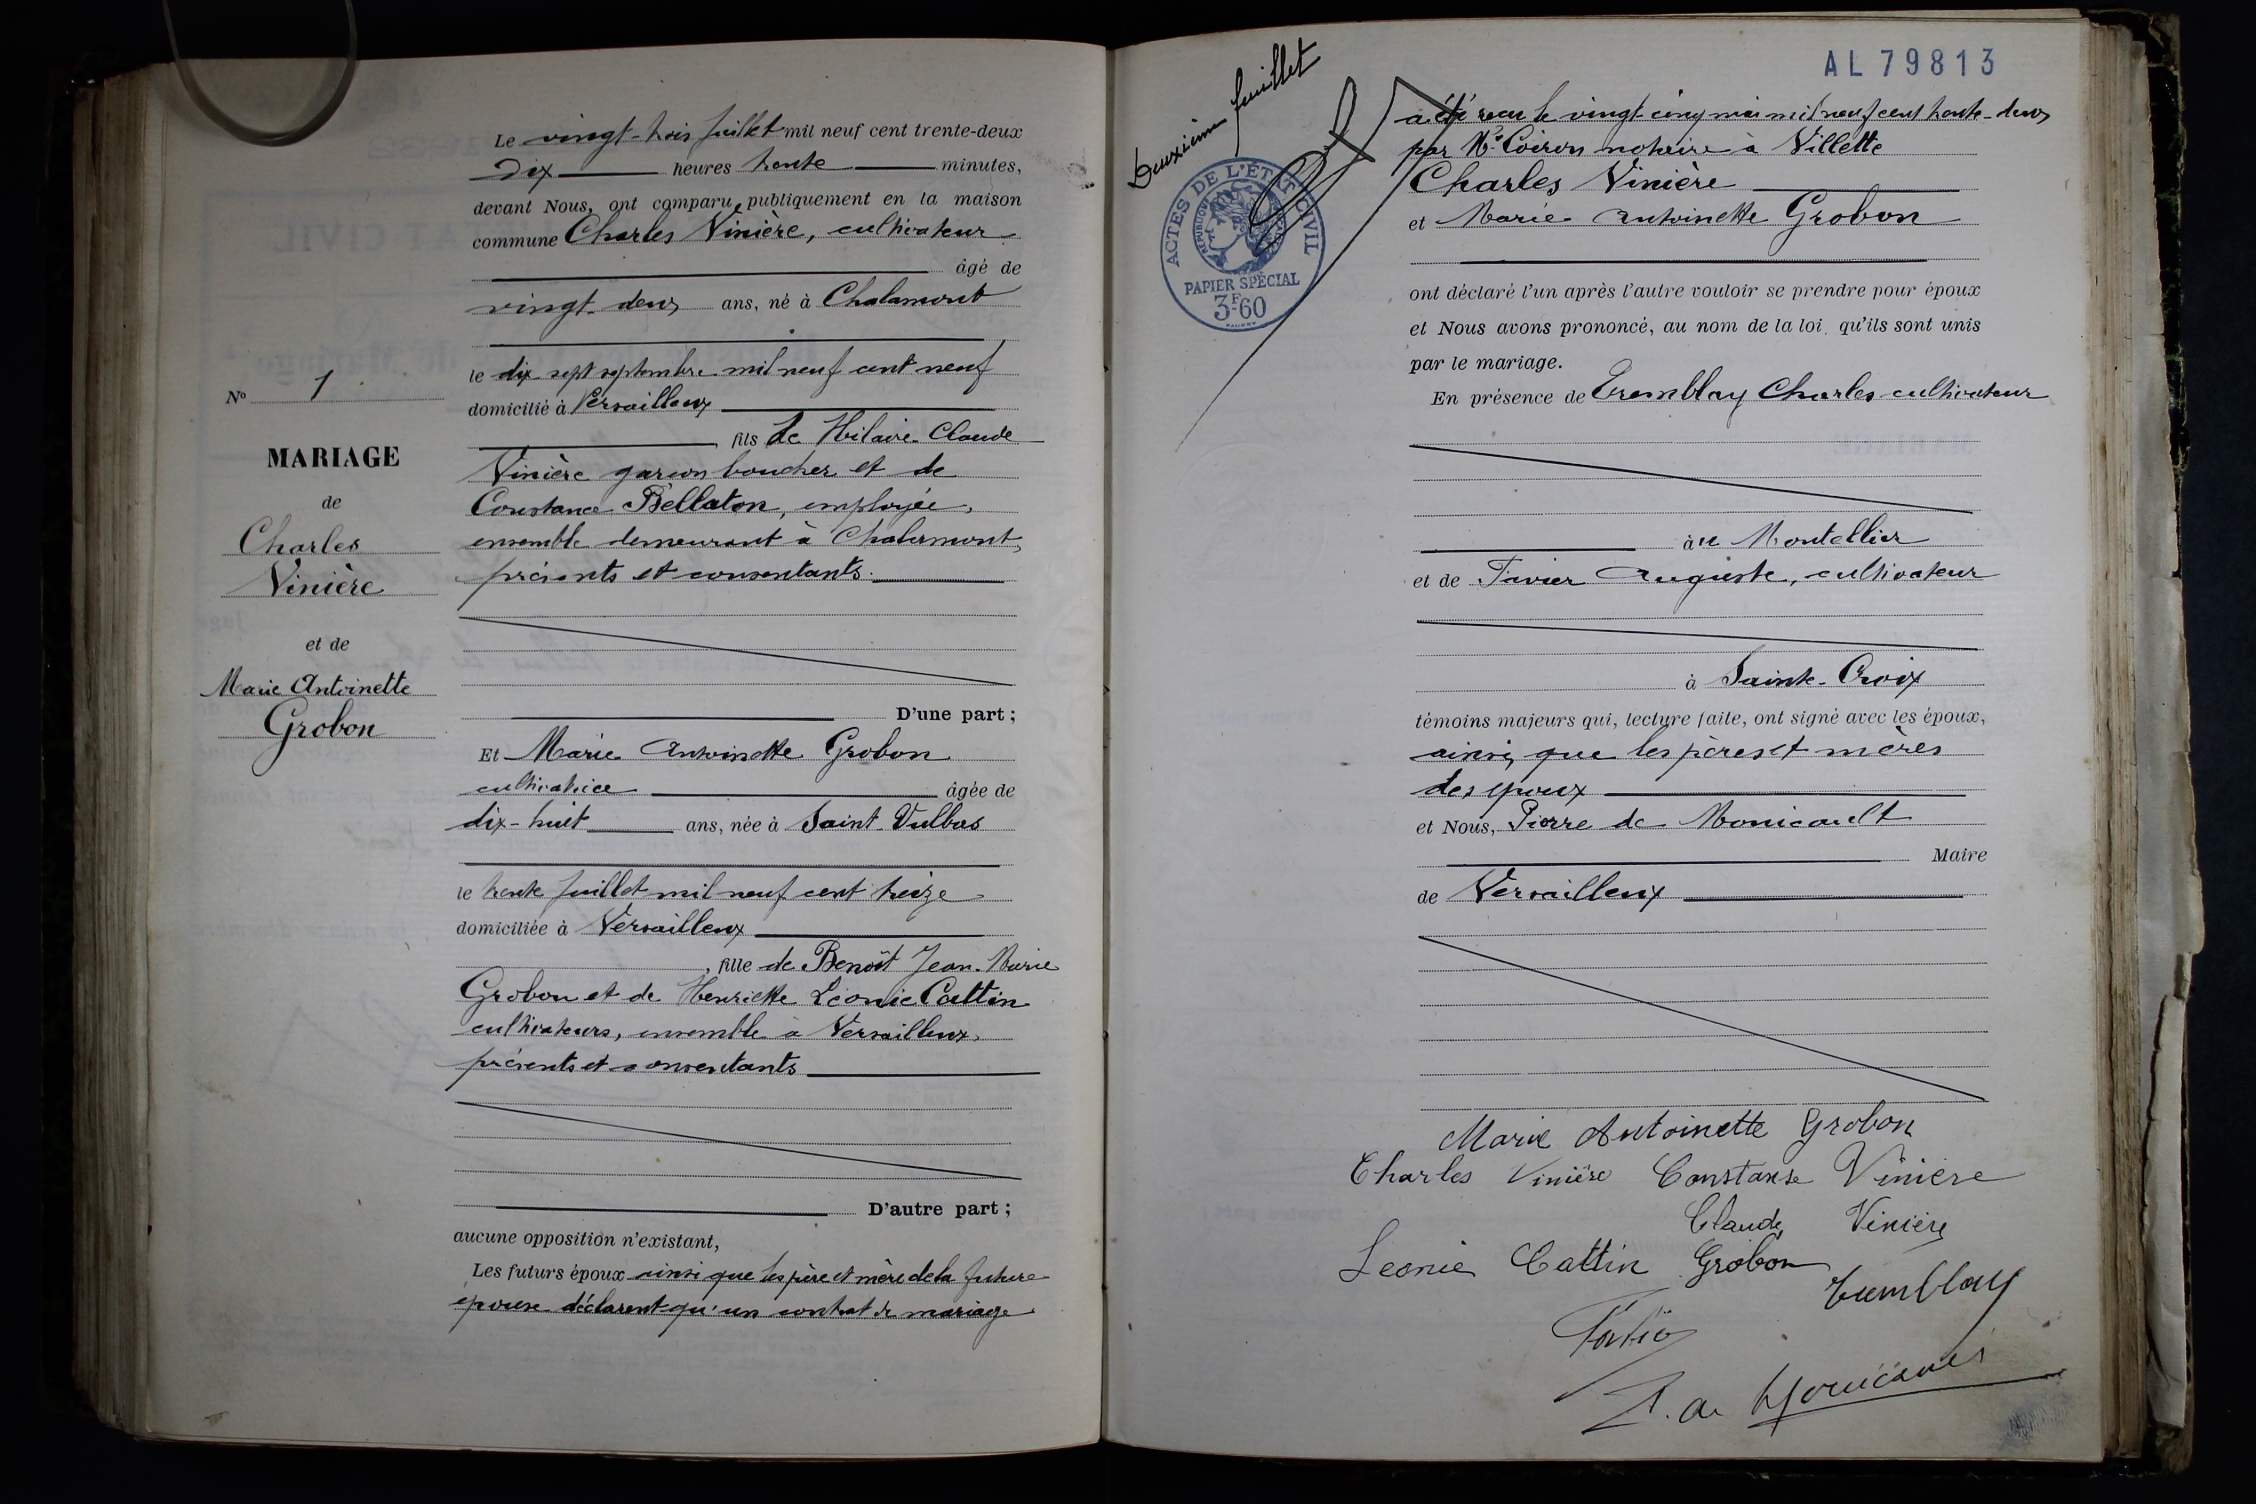 Le vingt-trois juillet mil neuf cent trente-deux
Dix heures trente minutes,
devant Nous, ont comparu publiquement en la maison
commune Charles Vinière, cultivateur
âgé de
vingt-deux ans, né à Chalamont
le dix sept septembre mil neuf cent neuf
domicilié à Versailleux
fils de Hilaire-Claude
Vinière garçon boucher et de
Constance Bellaton, employée,
ensemble demeurant à Chalamont,
présents et consentants.
D'une part ;
Et Marie Antoinette Grobon
cultivatrice âgée de
dix-huit ans, née à Saint-Vulbas
le trente juillet mil neuf cent treize
domiciliée à Versailleux
, fille de Benoît Jean-Marie
Grobon et de Henriette Léonie Cattin
cultivateurs, ensemble à Versailleux,
présents et consentants
D'autre part ;
aucune opposition n'existant,
Les futurs époux ainsi que les père et mère de la future
épouse déclarent qu'un contrat de mariage
N° 1
MARIAGE
de
Charles
Vinière
et de
Marie Antoinette
Grobon
Deuxième feuillet
AL 79813
ACTES DE L'ÉTAT CIVIL
PAPIER SPÉCIAL
3F.60
a été reçu le vingt-cinq mai mil neuf cent trente-deux
par Me Coiron notaire à Villette
Charles Vinière
et Marie-Antoinette Grobon
ont déclaré l'un après l'autre vouloir se prendre pour époux
et Nous avons prononcé, au nom de la loi qu'ils sont unis
par le mariage.
En présence de Tremblay Charles cultivateur
àu Montellier
et de Tivier Auguste, cultivateur
à Sainte-Croix
témoins majeurs qui, lecture faite, ont signé avec les époux,
ainsi que les pères et mères
des époux
et Nous, Pierre de Monicault
Maire
de Versailleux
Marie Antoinette Grobon
Charles Vinière Constanse Vinière
Claude Vinière
Leonie Cattin Grobon
Tremblay
P. de Monicault